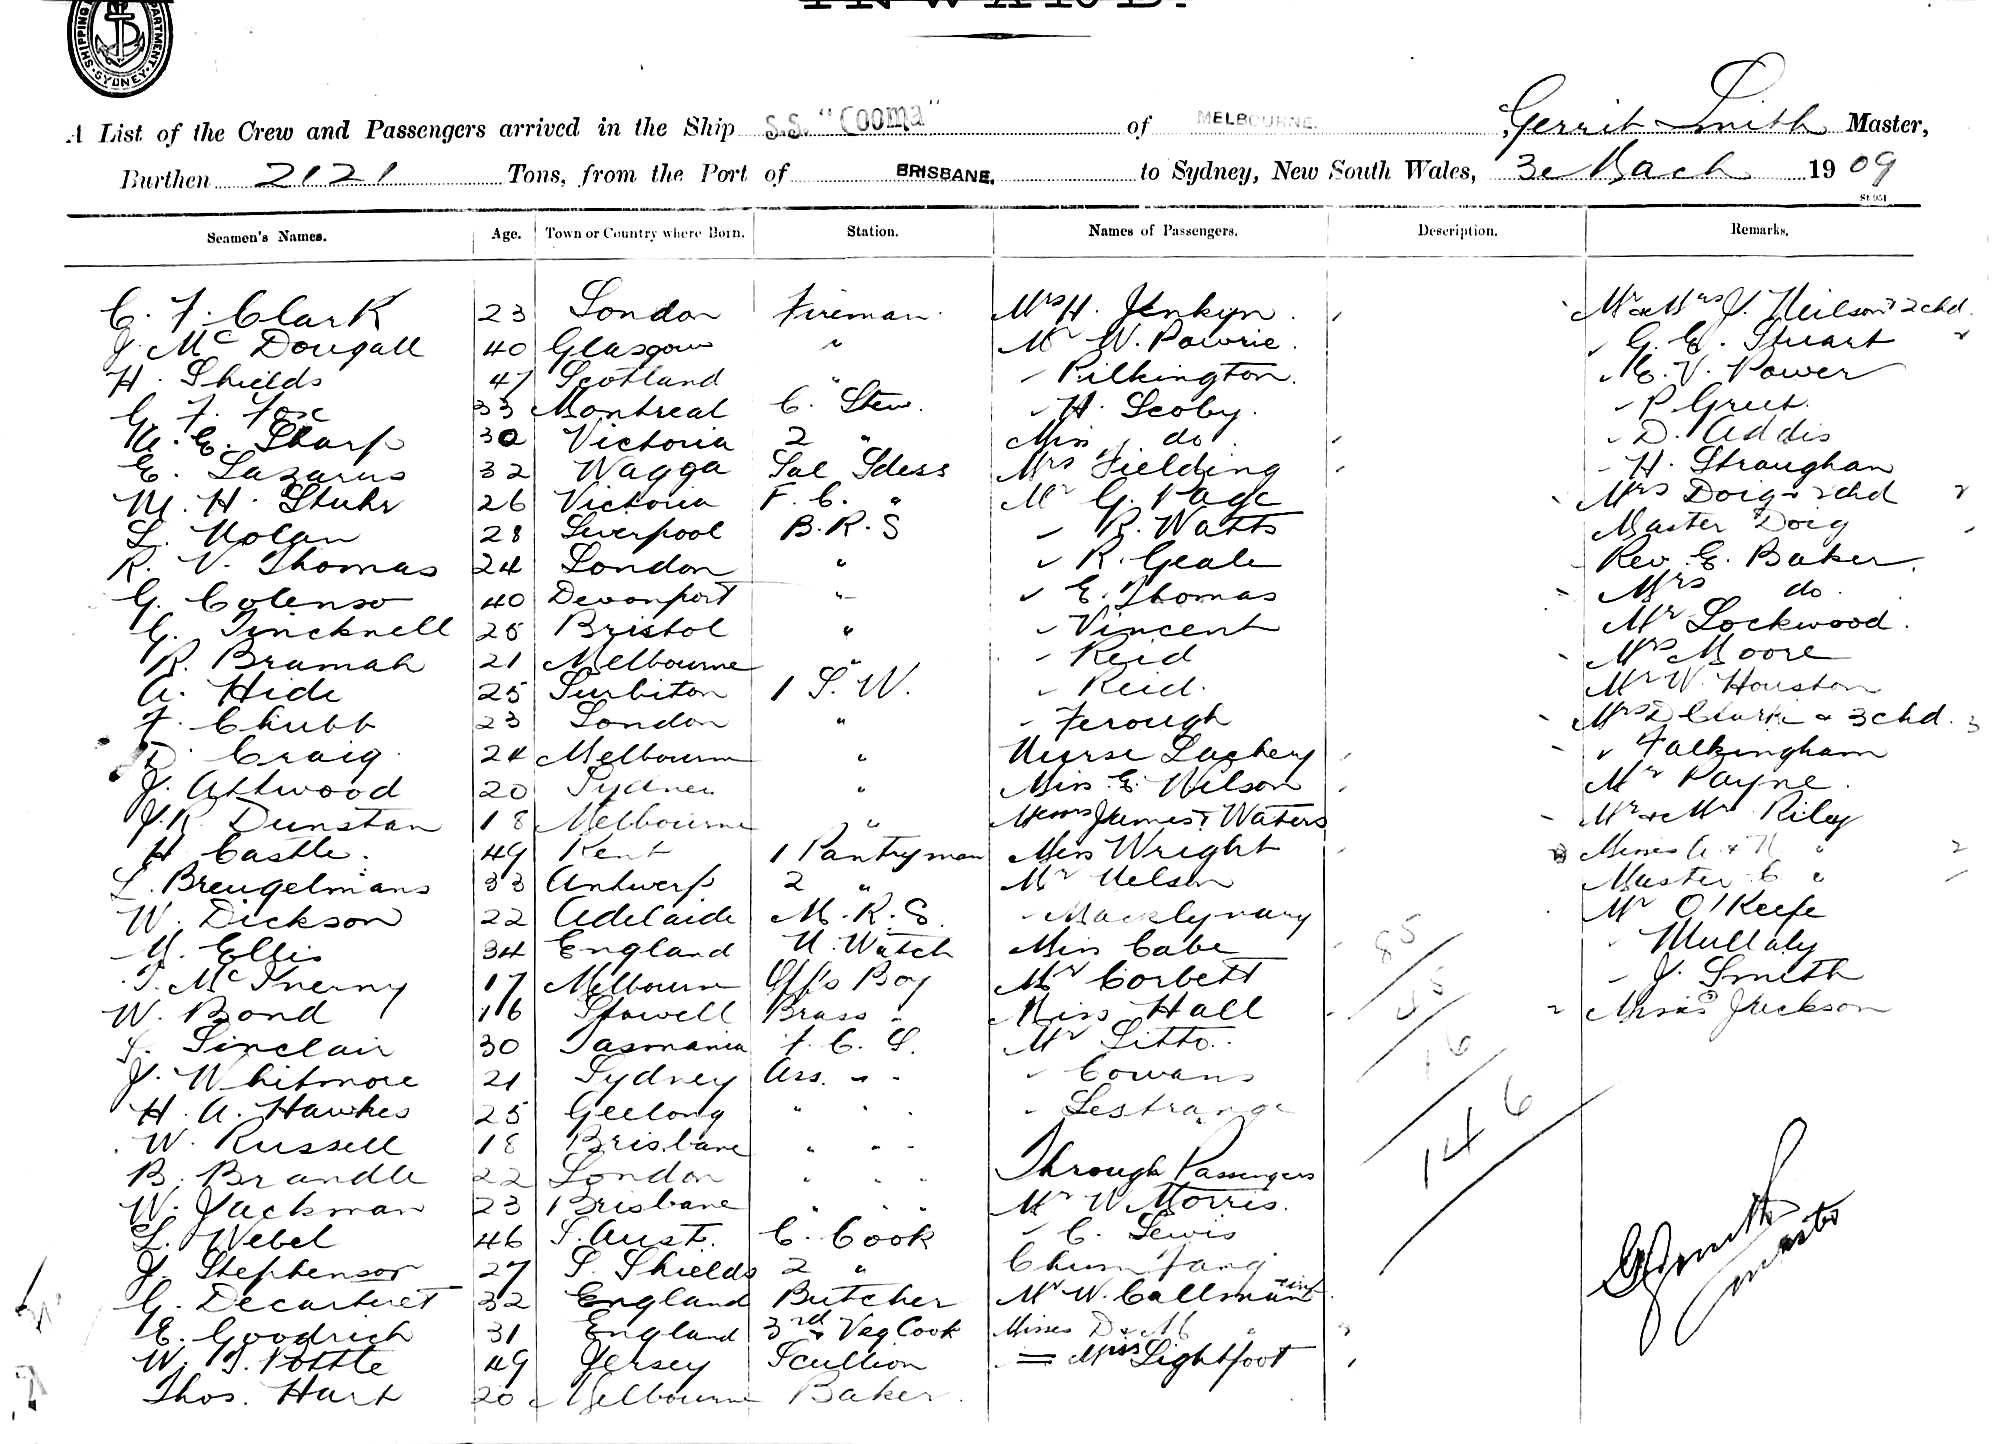 INWARD.
SHIPPING DEPARTMENT SYDNEY
A List of the Crew and Passengers arrived in the Ship S.S. "Cooma" of MELBOURNE. Gerrit Smith Master,
Burthen 2121 Tons, from the Port of BRISBANE, to Sydney, New South Wales, 3e Mach 1909
Seamen's Names. Age. Town or Country where Born. Station. Names of Passengers. Description. Remarks.
C. F. Clark 23 London Fireman. Mrs H. Jenkyn. Mr & Mrs J. Neilson & 2 chd.
J. McDougall 40 Glasgow " Mr W. Powrie. " G. E. Stuart
H. Shields 47 Scotland " " Pilkington. " E. V. Power
G. F. Fox 33 Montreal C. Stew. " H. Scoby. " P Greet.
M. E. Sharp 30 Victoria 2 " Miss do. " D. Addis
E. Lazarus 32 Wagga Sal Sdess Mrs Fielding " H. Straughan
M. H. Stuhr 26 Victoria F. C. " Mr G. Page Mrs Doig & 2 chd 2
L. Nolan 28 Liverpool B. R. S " R. Watts Master Doig
R. V. Thomas 24 London " " R. Geale Rev. E. Baker.
G. Colenso 40 Devonport " " E. Thomas Mrs do.
G. Tincknell 25 Bristol " " Vincent Mr Lockwood.
R. Bramah 21 Melbourne " " Reid Mrs Moore
A. Hide 25 Surbiton 1 S. W. " Reid. Mr W. Houston
F. Chubb 23 London " " Ferough Mrs D Clark & 3 chd. 3
D. Craig. 24 Melbourne " Nurse Lachery " Falkingham
J. Attwood 20 Sydney " Miss E. Wilson Mr Payne.
J. R. Dunstan 18 Melbourne " Messrs James & Waters Mr & Mrs Riley
H Castle. 49 Kent 1 Pantryman Miss Wright Misses A & N " 2
L. Breugelmans 33 Antwerp 2 " Mr Nelson Master C "
W. Dickson 22 Adelaide M. R. S. " Mr O'Keefe
M. Ellis 34 England N. Watch Miss Cabe " Mullaly
T. McInerny 17 Melbourne Offs Boy Mr Corbett " J. Smith
W. Bond 16 Stawell Brass " Miss Hall 2 Misses Jackson
S. Sinclair 30 Tasmania F. C. S. Mr Litto.
J. Whitmore 21 Sydney Ass. " " " Cowans
H. A. Hawkes 25 Geelong " " " " Lestrange
W. Russell 18 Brisbane " " " Through Passengers
B. Brandle 22 London " " "
W. Jackman 23 Brisbane " " " Mr W Morris.
L. Webel 46 S. Aust. C. Cook " C. Lewis
J. Stephenson 27 S. Shields 2 " Chum Fang
G. Decarteret 32 England Butcher Mr W. Callman
E. Goodrich 31 England 3rd & Veg Cook Misses D & M "
W. J. Pottle 49 Jersey Scullion Miss Lightfoot
Thos. Hart 20 Melbourne Baker.
85
45
16
146
G Smith
master